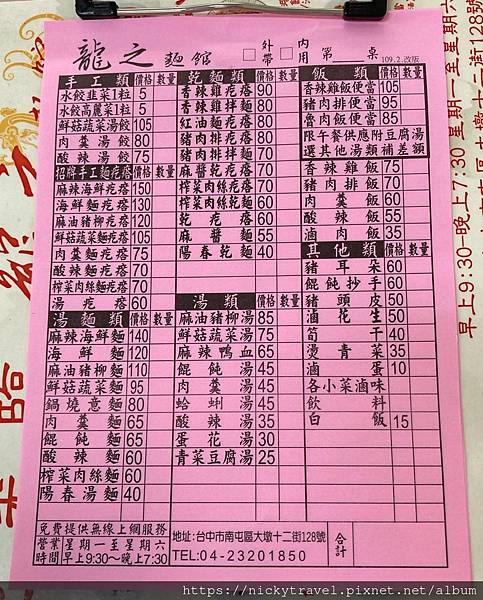 龍之麵館
□外帶 □內用 第 桌
109.2.改版
手工類 價格 數量
水餃韭菜1粒 5
水餃高麗菜1粒 5
鮮菇蔬菜湯餃 105
肉羹湯餃 80
酸辣湯餃 75
招牌手工麵疙瘩 價格 數量
麻辣海鮮疙瘩 150
海鮮麵疙瘩 130
麻油豬柳疙瘩 120
鮮菇蔬菜麵疙瘩 105
肉羹麵疙瘩 75
酸辣麵疙瘩 70
榨菜肉絲麵疙瘩 70
湯疙瘩 60
湯麵類 價格 數量
麻辣海鮮麵 140
海鮮麵 120
麻油豬柳麵 110
鮮菇蔬菜麵 95
鍋燒意麵 80
肉羹麵 65
餛飩麵 65
酸辣麵 60
榨菜肉絲麵 60
陽春湯麵 40
乾麵類 價格 數量
香辣雞疙瘩 90
香辣雞拌麵 80
紅油麵疙瘩 80
豬肉排疙瘩 80
豬肉排拌麵 70
麻醬乾疙瘩 70
榨菜肉絲疙瘩 70
榨菜肉絲乾麵 60
乾疙瘩 60
麻醬麵 55
陽春乾麵 40
湯類 價格 數量
麻油豬柳湯 85
鮮菇蔬菜湯 75
麻辣鴨血 65
餛飩湯 45
肉羹湯 45
蛤蜊湯 45
酸辣湯 35
蛋花湯 30
青菜豆腐湯 25
飯類 價格 數量
香辣雞飯便當 105
豬肉排便當 95
魯肉飯便當 85
限午餐供應附豆腐湯
選其他湯類補差額
香辣雞飯 75
豬肉排飯 70
肉羹飯 60
酸辣飯 55
滷肉飯 35
其他類 價格 數量
豬耳朵 60
餛飩抄手 60
豬頭皮 50
滷花生 50
筍干 40
燙青菜 35
滷蛋 10
各小菜滷味
飲料
白飯 15
免費提供無線上網服務
營業時間 星期一至星期六 早上9:30~晚上7:30
地址:台中市南屯區大墩十二街128號
TEL:04-23201850
合計
早上9:30-晚上7:30 星期一至星期六
https://nickytravel.pixnet.net/album